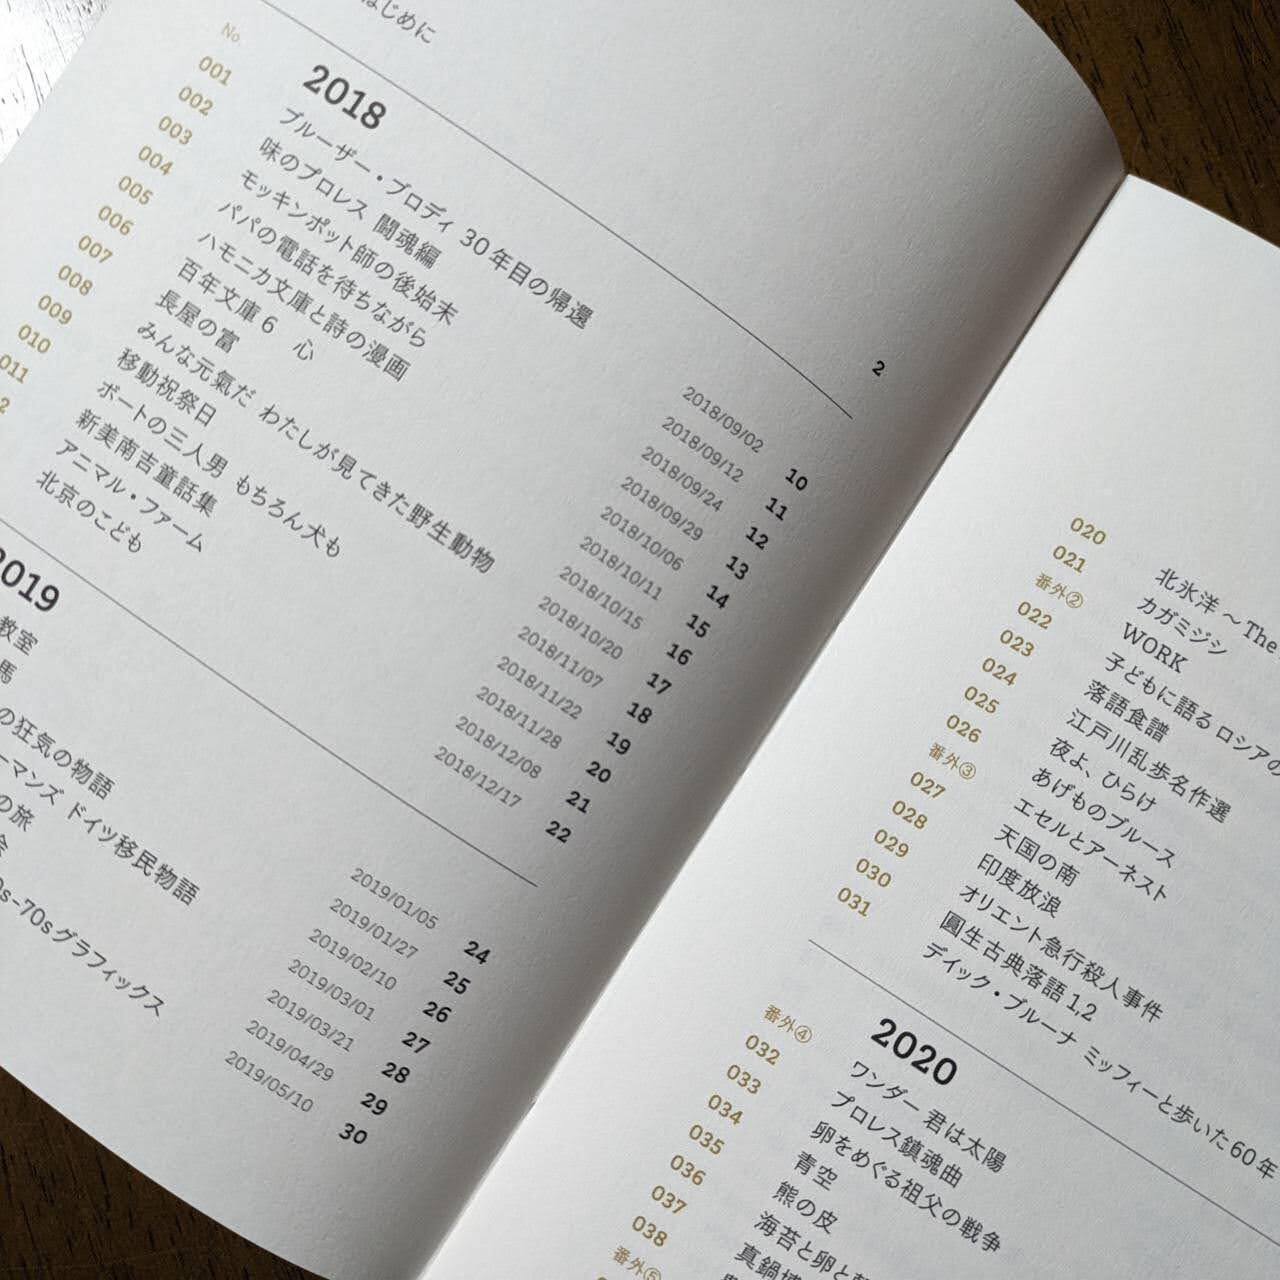 はじめに 2
No
2018
001 ブルーザー・ブロディ 30年目の帰還 2018/09/02 10
002 味のプロレス 闘魂編 2018/09/12 11
003 モッキンポット師の後始末 2018/09/24 12
004 パパの電話を待ちながら 2018/09/29 13
005 ハモニカ文庫と詩の漫画 2018/10/06 14
006 百年文庫6 心 2018/10/11 15
007 長屋の富 2018/10/15 16
008 みんな元氣だ わたしが見てきた野生動物 2018/10/20 17
009 移動祝祭日 2018/11/07 18
010 ボートの三人男 もちろん犬も 2018/11/22 19
011 新美南吉童話集 2018/11/28 20
2 アニマル・ファーム 2018/12/08 21
北京のこども 2018/12/17 22
2019
教室 2019/01/05 24
馬 2019/01/27 25
の狂気の物語 2019/02/10 26
ーマンズ ドイツ移民物語 2019/03/01 27
の旅 2019/03/21 28
2019/04/29 29
0s-70sグラフィックス 2019/05/10 30
020 北氷洋 ～The
021 カガミジシ
番外② WORK
022 子どもに語る ロシアの
023 落語食譜
024 江戸川乱歩名作選
025 夜よ、ひらけ
026 あげものブルース
番外③ エセルとアーネスト
027 天国の南
028 印度放浪
029 オリエント急行殺人事件
030 圓生古典落語 1,2
031 ディック・ブルーナ ミッフィーと歩いた60年
2020
番外④ ワンダー 君は太陽
032 プロレス鎮魂曲
033 卵をめぐる祖父の戦争
034 青空
035 熊の皮
036 海苔と卵と
037 真鍋
038
番外⑤